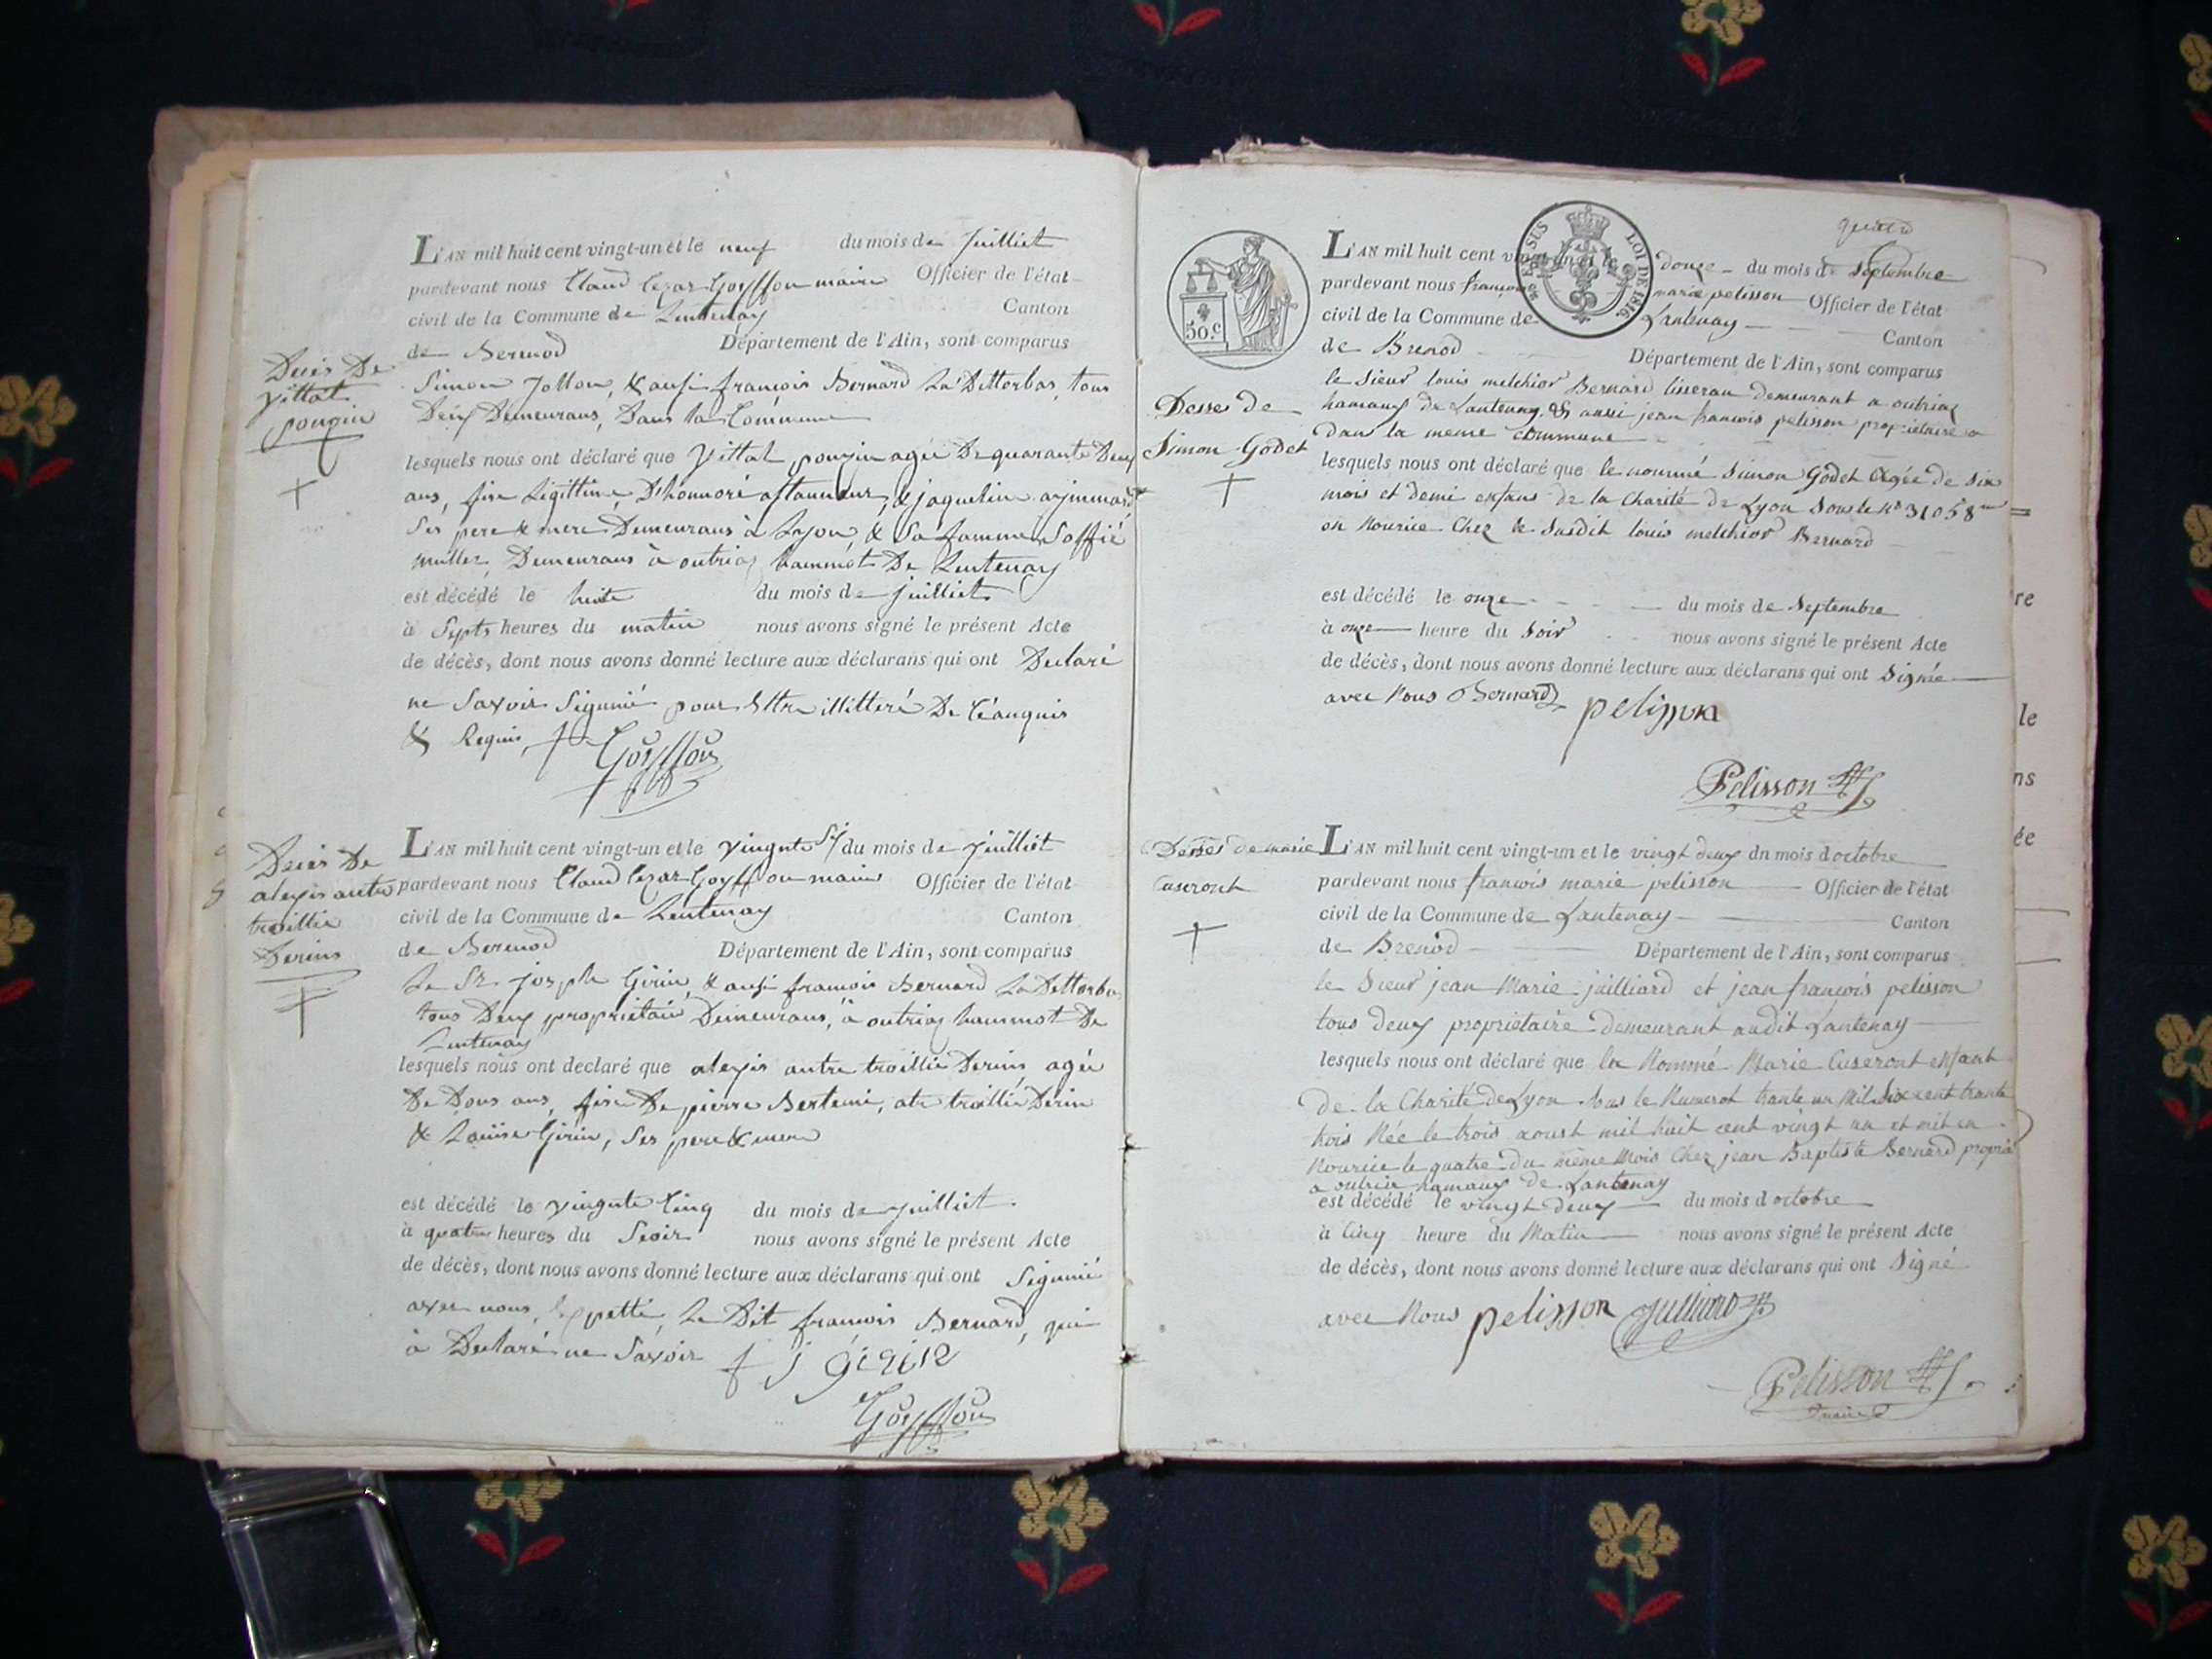 L'AN mil huit cent vingt-un et le neuf du mois de Juilliet
pardevant nous Claud Cezar Goyffon maire Officier de l'état
civil de la Commune de Lentenay Canton
de Bernod Département de l'Ain, sont comparus
Decès De
Vittal
pougin
Simon Jollon, & ausi françois Bernard La Dettorbas, tous
Deux Demeurans, Dans la Commune
lesquels nous ont déclaré que Vittal pougin agée De quarante Deux
ans, fise Ligittime, D'honnoré astanneur, & jaqueline
Ses pere & mere Demeurans à Lyon, & Sa famme Soffié
muller, Demeurans à outriaz hammot De Lentenay
est décédé le huite du mois de juilliet
à Septs heures du matin nous avons signé le présent Acte
de décès, dont nous avons donné lecture aux déclarans qui ont Declaré
ne Savoir Segunié pour Ettre illitteré De Cé anquis
& Requis, Goyffon
Decès De
alexis autre
traillie
Derins
L'AN mil huit cent vingt-un et le vingnte Six du mois de Juilliet
pardevant nous Claud Cezar Goyffon maire Officier de l'état
civil de la Commune de Lentenay Canton
de Bernod Département de l'Ain, sont comparus
Le Sr. joseph Girin, & ausi françois Bernard La Dettorbas
tous Deux proprietaire Demeurans, à outriaz hammot De
Lentenay
lesquels nous ont declaré que alexis autre traillie Derins agée
De Dous ans, fise De pierre Bertemi, atre traillie Derin
& Louise Girin, Ses pere & mere
est décédé le vingnte Cinq du mois de juilliet
à quatre heures du Seoir nous avons signé le présent Acte
de décès, dont nous avons donné lecture aux déclarans qui ont Segunié
avec nous, Le Dit françois Bernard, qui
à Declaré ne Savoir J girin
Goyffon
50.c
SUS LOI DE 1816.
L'AN mil huit cent vingt-un et le douze du mois de Septembre
pardevant nous françois marie pelisson Officier de l'état
civil de la Commune de Lantenay Canton
de Brenod Département de l'Ain, sont comparus
Desses de
Simon Godet
le Sieur louis melchior Bernard tisseran demeurant a outriaz
hamaux de Lantenay. & aussi jean francois pelisson proprietaire
dans la meme commune
lesquels nous ont déclaré que le nommé Simon Godet Agée de Six
mois et demi enfans de la Charité de Lyon Sous le No 31058
en Nourice Chez le Susdit louis melchior Bernard
est décédé le onze du mois de Septembre
à onze heure du Soir nous avons signé le présent Acte
de décès, dont nous avons donné lecture aux déclarans qui ont Signée
avec Nous Bernard pelisson
Pelisson
Desses de marie
Caseront
L'AN mil huit cent vingt-un et le vingt deux du mois d octobre
pardevant nous francois marie pelisson Officier de l'état
civil de la Commune de Lantenay Canton
de Brenod Département de l'Ain, sont comparus
le Sieur jean Marie juilliard et jean françois pelisson
tous deux proprietaire demeurant audit Lantenay
lesquels nous ont déclaré que la Nommé Marie Caseront enfant
de la Charité de Lyon Sous le Numerot trante un Mil Six cent trante
trois Née le trois aoust mil huit cent vingt un et mit en
Nourice le quatre du même Mois Chez jean Baptiste Bernard propria
a outria hamaux de Lantenay
est décédé le vingt deux du mois d octobre
à Cinq heure du Matin nous avons signé le présent Acte
de décès, dont nous avons donné lecture aux déclarans qui ont Signé
avec Nous pelisson Juilliard
Pelisson
maire
re
le
ns
ée